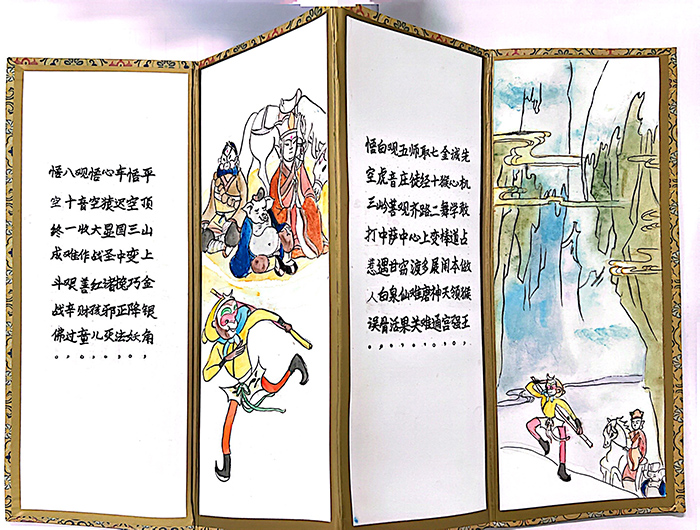 先机敢占做猴王。
诚心学道本领强。
金猴舞棒闹天宫。
七十二变展神通。
取经路上多磨难。
师徒齐心渡难关。
五庄观中窃仙果。
观音菩萨甘泉活。
白虎岭中遇白骨。
悟空三打惹人误。
平顶山上金银角。
悟空三变巧降妖。
车迟国中正法。
心猿显圣诸邪灭。
悟空大战红孩儿。
观音收作善财童。
八十一难艰辛过。
悟空终成斗战佛。